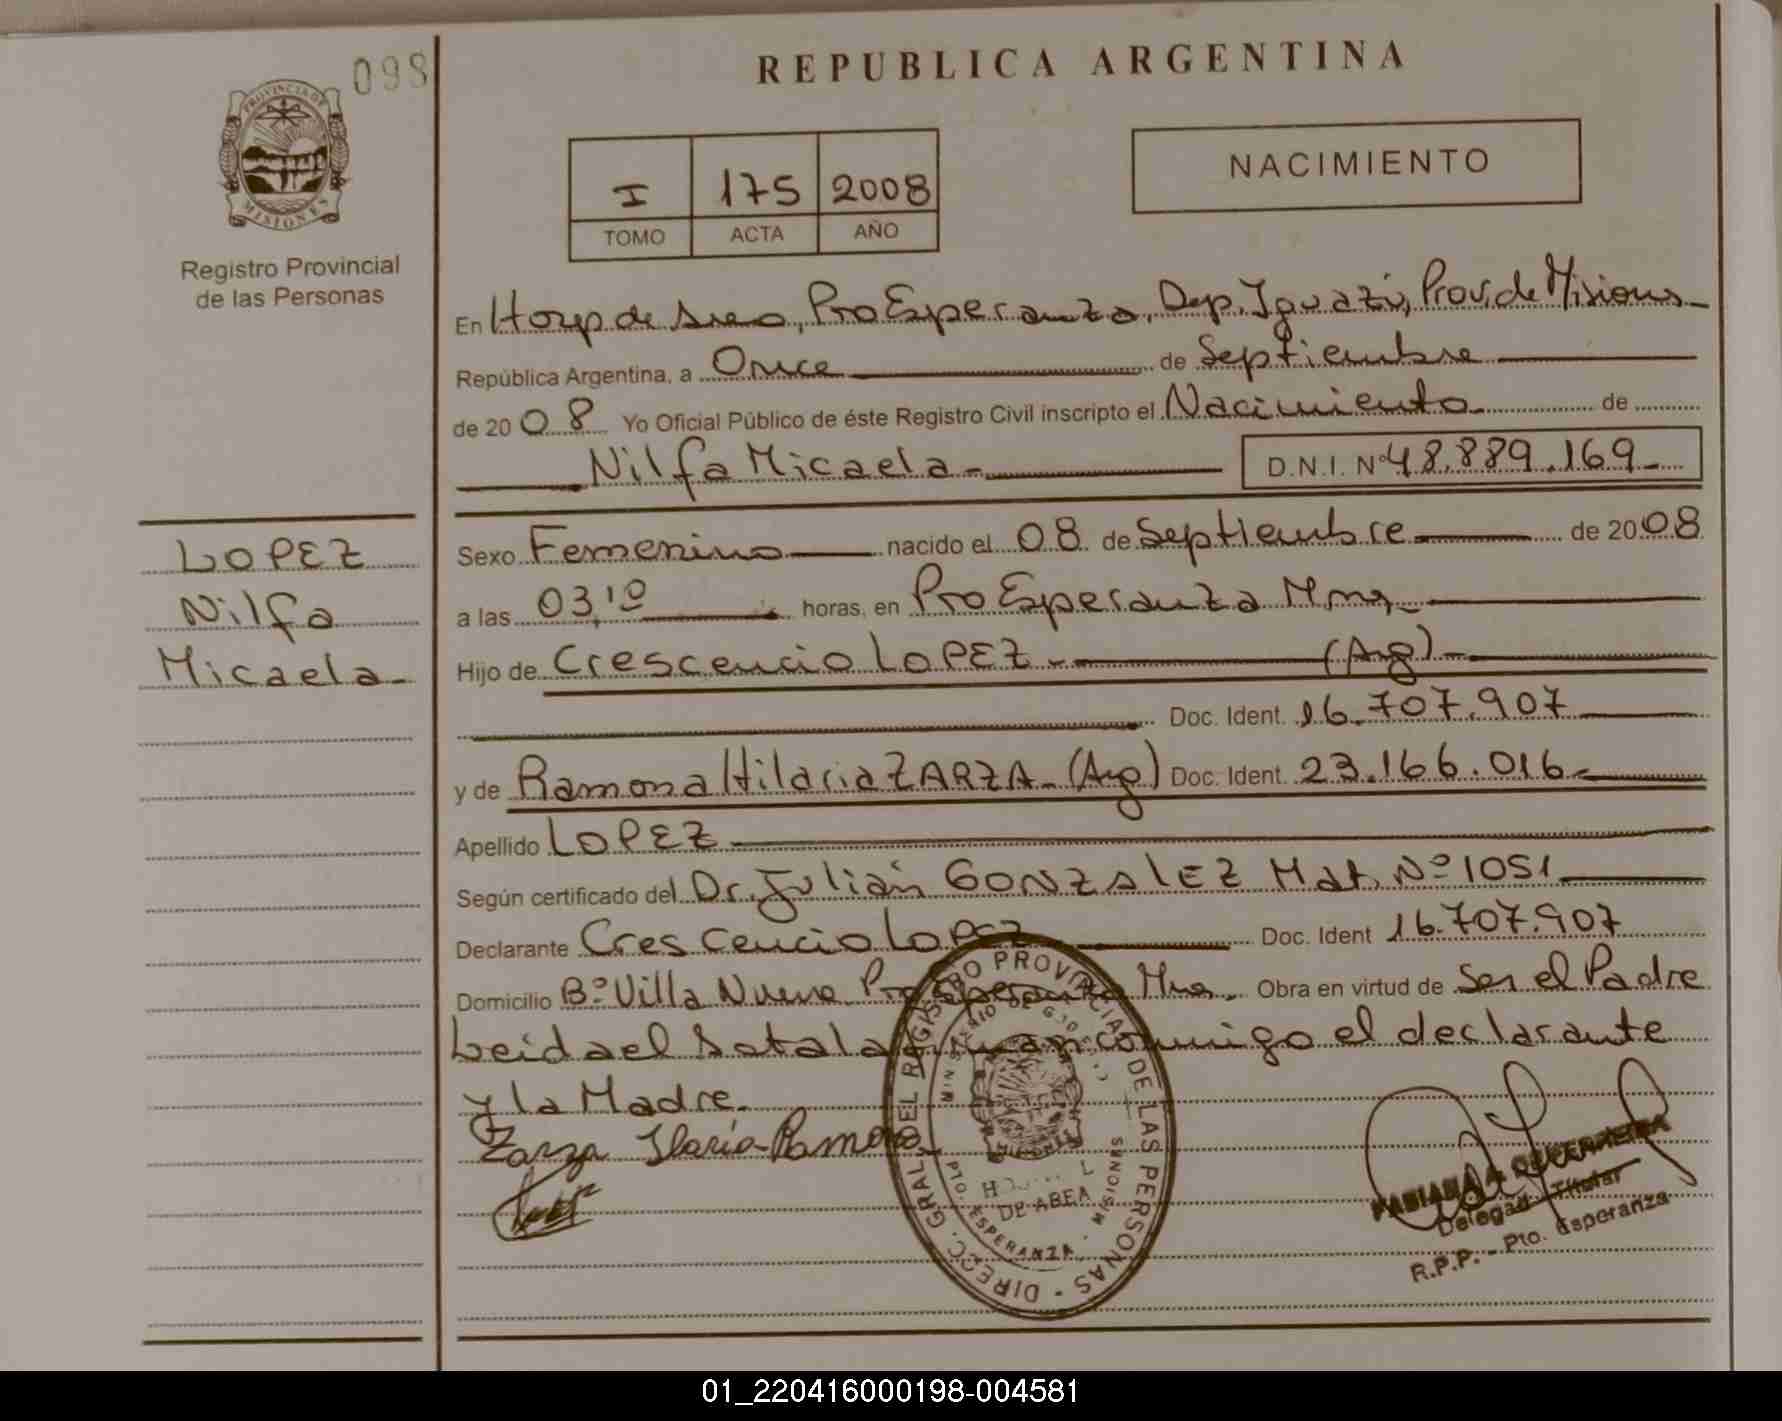 098
PROVINCIA DE
MISIONES
Registro Provincial
de las Personas
REPUBLICA ARGENTINA
I 175 2008
TOMO ACTA AÑO
NACIMIENTO
En Hosp de Area, Pto Esperanza, Dep. Iguazú, Prov. de Misiones
República Argentina, a Once de Septiembre
de 2008 Yo Oficial Público de éste Registro Civil inscripto el Nacimiento de
Nilfa Micaela D.N.I. Nº 48.889.169
Sexo Femenino nacido el 08 de Septiembre de 2008
a las 03,10 horas, en Pto Esperanza Mnes.
Hijo de Crescencio LOPEZ (Arg)
Doc. Ident. 16.707.907
y de Ramona Hilaria ZARZA (Arg) Doc. Ident. 23.166.016
Apellido LOPEZ
Según certificado del Dr. Julián GONZALEZ Mat. Nº 1051
Declarante Crescencio LOPEZ Doc. Ident 16.707.907
Domicilio Bº Villa Nueva Pto Esperanza Mnes. Obra en virtud de Ser el Padre
Leida el Acta la firman conmigo el declarante
y la Madre.
Zarza Ilaria Ramona
LOPEZ
Nilfa
Micaela
DIREC. GRAL. DEL REGISTRO PROVINCIAL DE LAS PERSONAS
MINISTERIO DE GOBIERNO
DE AREA
PTO. ESPERANZA - MISIONES
FABIANA
Delegada Titular
R.P.P. - Pto. Esperanza
01_220416000198-004581